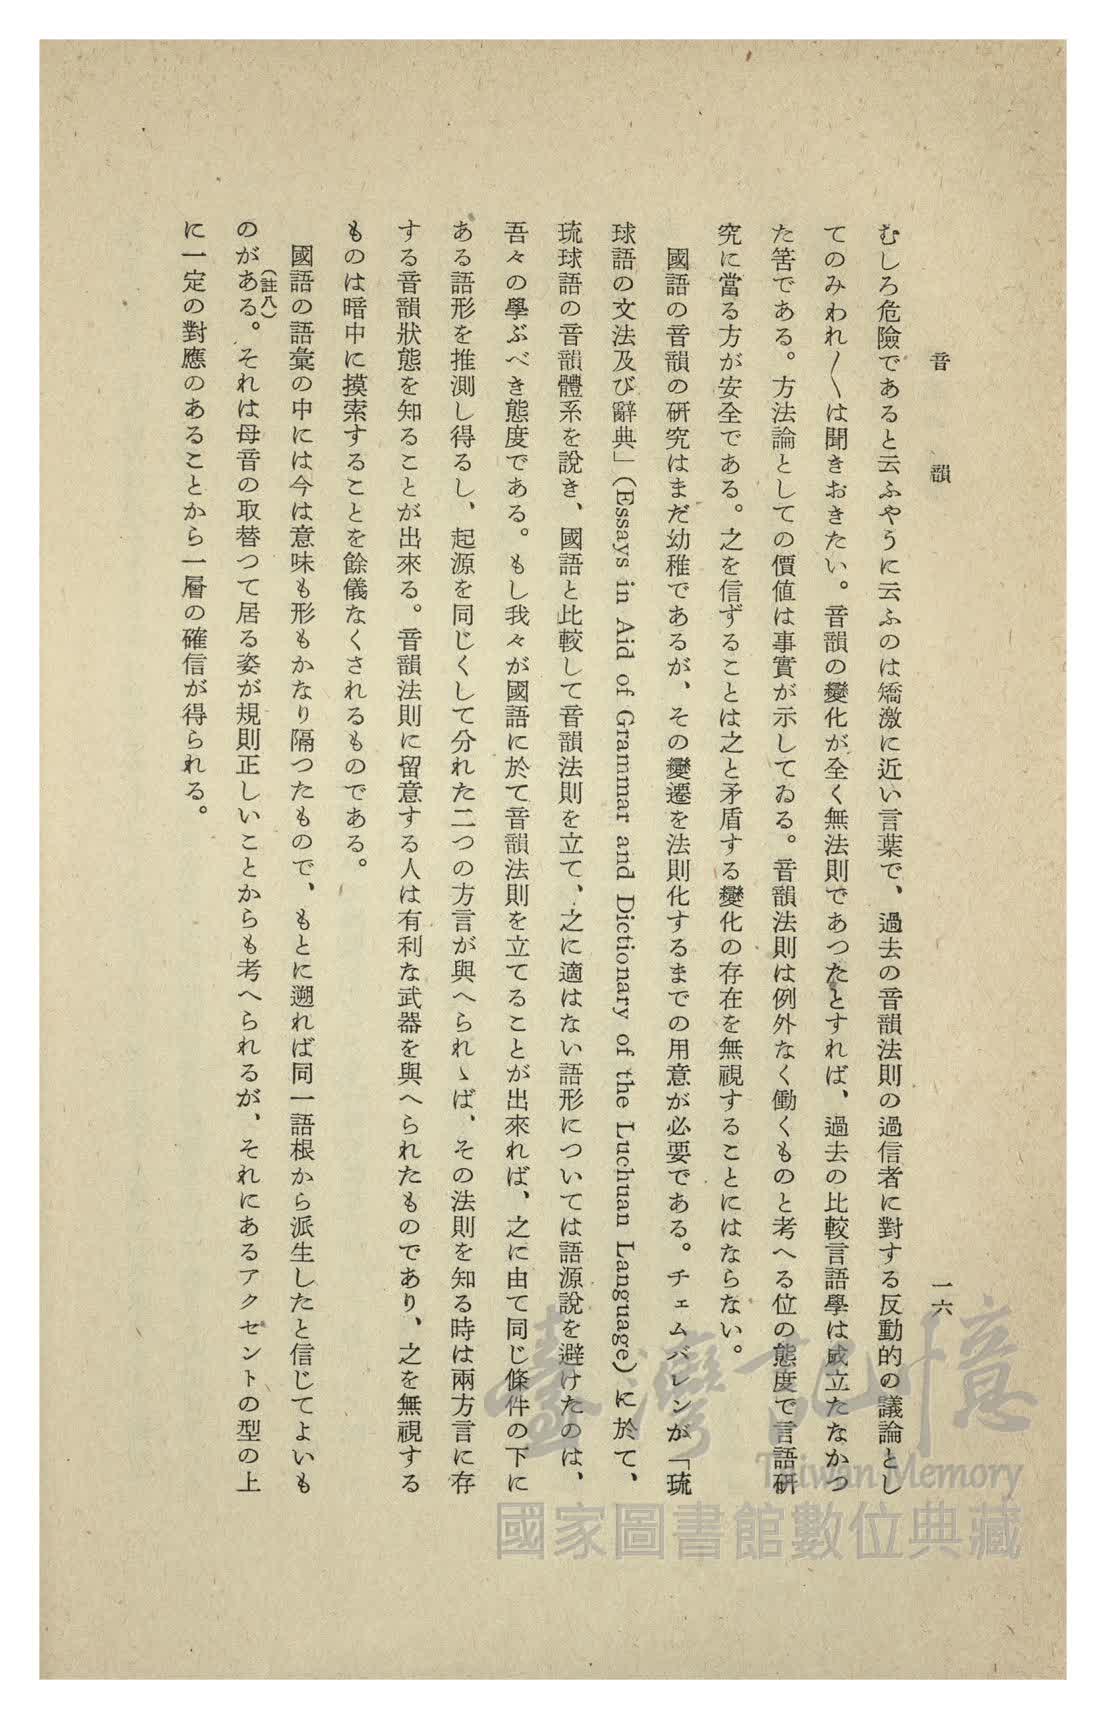 音韻
一六
むしろ危險であると云ふやうに云ふのは矯激に近い言葉で、過去の音韻法則の過信者に對する反動的の議論とし
てのみわれ〳〵は聞きおきたい。音韻の變化が全く無法則であつたとすれば、過去の比較言語學は成立たなかつ
た筈である。方法論としての價値は事實が示してゐる。音韻法則は例外なく働くものと考へる位の態度で言語硏
究に當る方が安全である。之を信ずることは之と矛盾する變化の存在を無視することにはならない。
國語の音韻の硏究はまだ幼稚であるが、その變遷を法則化するまでの用意が必要である。チェムバレンが「琉
球語の文法及び辭典」(Essays in Aid of Grammar and Dictionary of the Luchuan Language)に於て、
琉球語の音韻體系を說き、國語と比較して音韻法則を立て、之に適はない語形については語源說を避けたのは、
吾々の學ぶべき態度である。もし我々が國語に於て音韻法則を立てることが出來れば、之に由て同じ條件の下に
ある語形を推測し得るし、起源を同じくして分れた二つの方言が與へられゝば、その法則を知る時は兩方言に存
する音韻狀態を知ることが出來る。音韻法則に留意する人は有利な武器を與へられたものであり、之を無視する
ものは暗中に摸索することを餘儀なくされるものである。
國語の語彙の中には今は意味も形もかなり隔つたもので、もとに遡れば同一語根から派生したと信じてよいも
のがある。(註八)それは母音の取替つて居る姿が規則正しいことからも考へられるが、それにあるアクセントの型の上
に一定の對應のあることから一層の確信が得られる。
臺灣記憶
Taiwan Memory
國家圖書館數位典藏